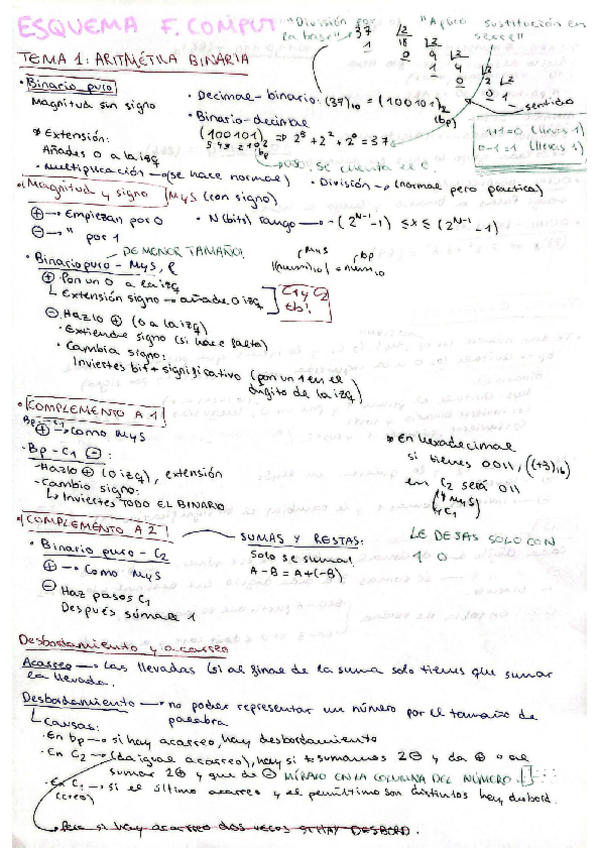 ESQUEMA F. COMPUT
"División por la base"
"Aplico sustitución en serie"
37 |2
1 18 |2
0 9 |2
1 4 |2
0 2 |2
0 1
sentido
TEMA 1: ARITMÉTICA BINARIA
• Binario puro
Magnitud sin signo
• Decimal - binario: (37)10 = (100101)2
(bp)
• Binario-decimal
(100101)2 => 2^5 + 2^2 + 2^0 = 37
5 4 3 2 1 0
bp
se cuenta el 0.
1+1=0 (llevas 1)
0-1=1 (llevas 1)
* Extensión:
Añades 0 a la izq
• Multiplicación → (se hace normal)
• División → (normal pero practica)
• Magnitud y signo MyS (con signo)
⊕ → Empiezan por 0
⊖ → " por 1
• N(bits) rango → -(2^N-1 -1) ≤ x ≤ (2^N-1 -1)
DE MENOR TAMAÑO!
• Binario puro - MyS
MyS
bp
⊕ Pon un 0 a la izq
Extensión signo → añade 0 izq
C1 y C2 tb!
⊖ Hazlo ⊕ (0 a la izq)
• Extiende signo (si hace falta)
• Cambia signo:
Inviertes bit + significativo (pon un 1 en el dígito de la izq)
• COMPLEMENTO A 1
Bp - C1
⊕ → como MyS
- Bp - C1 ⊖:
- Hazlo ⊕ (0 izq), extensión
- Cambio signo:
Inviertes TODO EL BINARIO
* En hexadecimal
si tienes 0011, ((+3)16)
en C2 será 011
(y MyS)
y C1
LE DEJAS SOLO CON
1 0
• COMPLEMENTO A 2
SUMAS Y RESTAS:
Solo se suma!
A - B = A + (-B)
• Binario puro - C2
⊕ → Como MyS
⊖ Haz pasos C1
Después súmale 1
Desbordamiento y acarreo
Acarreo → Las llevadas (si al final de la suma solo tienes que sumar
la llevada.
Desbordamiento → no poder representar un número por el tamaño de
palabra
Causas:
• En bp → si hay acarreo, hay desbordamiento
• En C2 → (da igual acarreo), hay si sumamos 2⊖ y da ⊕ o al
sumar 2⊕ y que dé ⊖ MÍRALO EN LA COLUMNA DEL NÚMERO
• En C1 → si el último acarreo y el penúltimo son distintos hay desbord.
(cero)
Pero si hay acarreo dos veces SI HAY DESBORD.